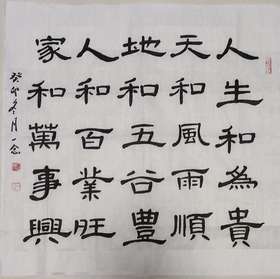 人生和為貴
天和風雨順
地和五谷豐
人和百業旺
家和萬事興
癸卯冬月一念